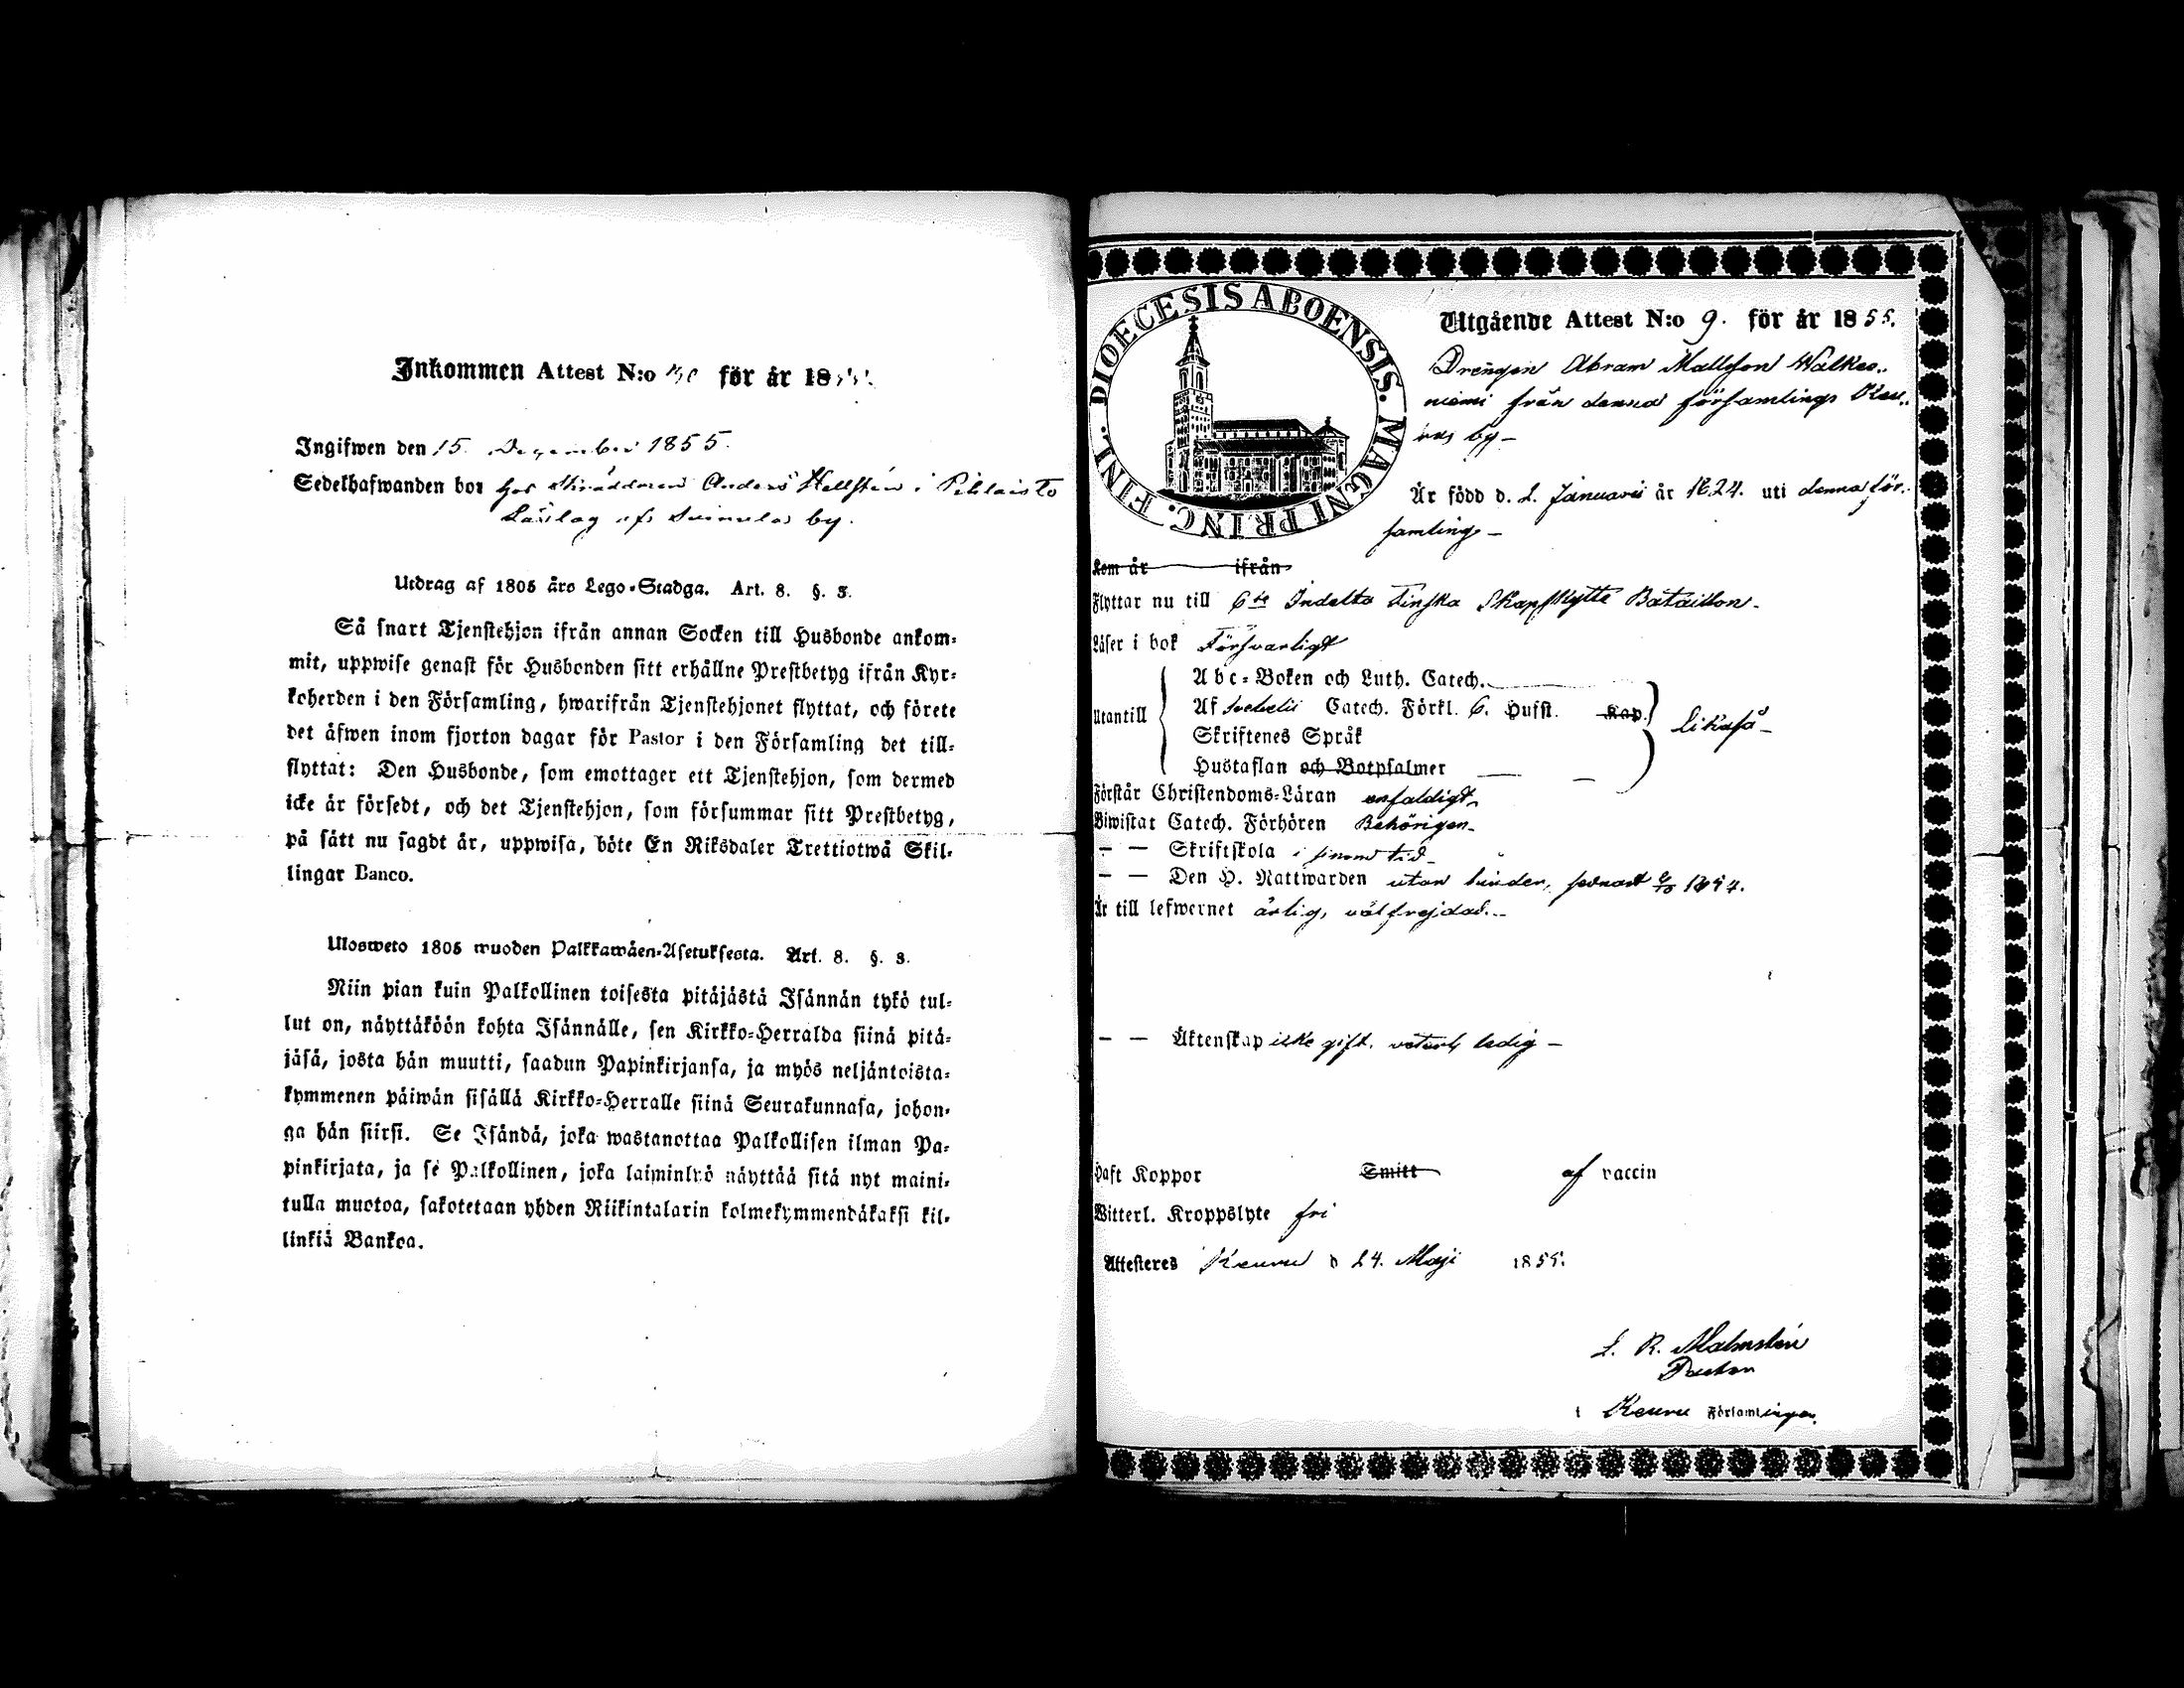 Inkommen Attest N:o för år 1855.
Ingifwen den 15. December 1855.
Sedelhafwanden bor hos Skräddaren Anders Hellstén i Pihlaisto
Läslag af by.
Utdrag af 1805 års Lego-Stadga. Art. 8. §. 3.
Så snart Tjenstehjon ifrån annan Socken till Husbonde ankom-
mit, uppwise genast för Husbonden sitt erhållne Prestbetyg ifrån Kyr-
koherden i den Församling, hwarifrån Tjenstehjonet flyttat, och förete
det äfwen inom fjorton dagar för Pastor i den Församling det till-
flyttat: Den Husbonde, som emottager ett Tjenstehjon, som dermed
icke är försedt, och det Tjenstehjon, som försummar sitt Prestbetyg,
på sätt nu sagdt är, uppwisa, böte En Riksdaler Trettiotwå Skil-
lingar Banco.
Ulosweto 1805 wuoden Palkkawäen-Asetuksesta. Art. 8. §. 3.
Niin pian kuin Palkollinen toisesta pitäjästä Isännän tykö tul-
lut on, näyttäköön kohta Isännälle, sen Kirkko-Herralda siinä pitä-
jäsä, josta hän muutti, saadun Papinkirjansa, ja myös neljäntoista-
kymmenen päiwän sisällä Kirkko-Herralle siinä Seurakunnasa, johon-
ga hän siirsi. Se Isändä, joka wastanottaa Palkollisen ilman Pa-
pinkirjata, ja se Palkollinen, joka laiminlyö näyttää sitä nyt maini-
tulla muotoa, sakotetaan yhden Riikintalarin kolmekymmendäkaksi kil-
linkiä Bankoa.
DIOECESIS ABOENSIS. MAGNI PRINC. FINL.
Utgående Attest N:o 9. för år 1855.
Drengen Abram Mattsson Walkea-
niemi från denna församlings Keu-
ru by-
Är född d. 2. Januarii år 1824. uti denna för-
samling-
Kom år ifrån
Flyttar nu till 6te Indelta Finska Skarpskytte Bataillon-
Läser i bok Försvarligt
Utantill
Abc-Boken och Luth. Catech.
Af Svebelii Catech. Förkl. 6. Hufst. Kap.
Skriftenes Språk
Hustaflan och Botpsalmer
Likaså-
Förstår Christendoms-Läran enfaldigt-
Biwistat Catech. Förhören Behörigen-
— — Skriftskola i sinom tid-
— — Den H. Nattwarden utan hinder, senast
Är till lefwernet ärlig, välfrejdad.-
— — Äktenskap icke gift. ledig-
Haft Koppor Smitt af vaccin
Witterl. Kroppslyte fri
Attesteres Keuru d 24. Maji 1855.
L. R. Malmstén
Pastor
i Keuru Församlingen.